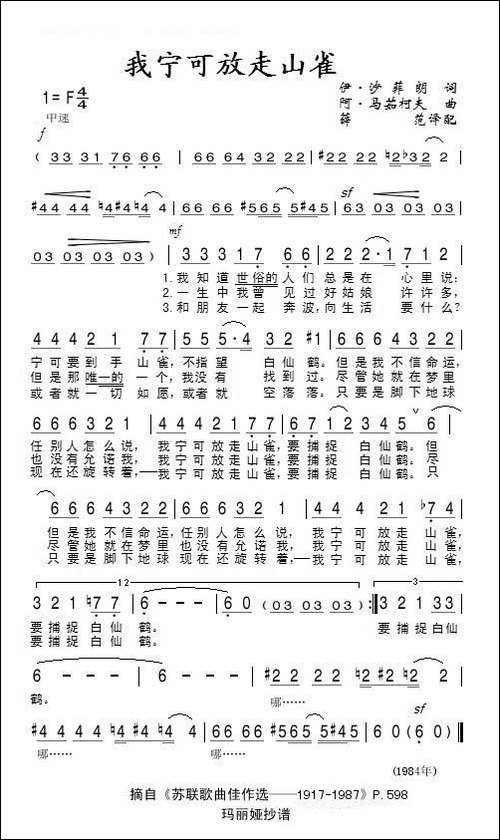 我宁可放走山雀
1=F 4/4
伊·沙菲朗 词
中速
阿·马茹柯夫 曲
薛 范译配
f
( 33 31 76 66 | 66 64 22 22 | #22 22 ♮2♭32 2 |
#44 44 ♮4#4♮4 4 | 66 66 #5655 #5#45 | 63 03 03 03 |
sf
03 03 03 03 ) | 3 3 3 1 7 6 6 | 2 2 2· 1 7 1 2 |
mf
1.我知道世俗的人们 总是在 心里说:
2.一生中我曾见过好姑娘 许许多,
3.和朋友一起奔波,向生活 要什么?
4 4 4 2 1 7 7 | 5 5 5·4 3 2 #1 | 6 6 6 6 7 1 2 |
宁可要到手山雀,不指望 白仙鹤。但是我不信命运,
但是那唯一的一个,我没有 找到过。尽管她就在梦里
或者就一切如愿,或者就 空落落。只要是脚下地球
6 6 6 3 2 1 | 4 4 4 2 1 7 7 | 6 7 1 3 4 5 5 6 |
任别人怎么说,我宁可放走山雀,要捕捉 白仙鹤。但
也没有允诺我,我宁可放走山雀,要捕捉 白仙鹤。尽
现在还旋转着,—我宁可放走山雀,要捕捉 白仙鹤。只
6 6 6 4 3 2 1 2 | 6 6 6 3 2 1 | 4 4 4 2 1 ♭7 4 |
但是我不信命运,任别人怎么说,我宁可放走山雀,
尽管她就在梦里也没有允诺我,我宁可放走山雀,
只要是脚下地球现在还旋转着,—我宁可放走山雀,
1 2
3
3 2 1 2 ♮7 7 | 6 - - - | 6 0 ( 03 03 03 ) :‖ 3 2 1 33 |
要捕捉白仙鹤。 要捕捉白仙
要捕捉白仙鹤。
6 - - - | 6 - - - | 22 22 #22 22 | ♮2 2 #2 ♮2 2 |
鹤。 哪……
#4 44 44 ♮4 #4 ♮4 4 | 66 66 #565 5 #545 | 6 0 (6 0) ‖
sf
哪……
(1984年)
摘自《苏联歌曲佳作选——1917-1987》P.598
玛丽娅抄谱